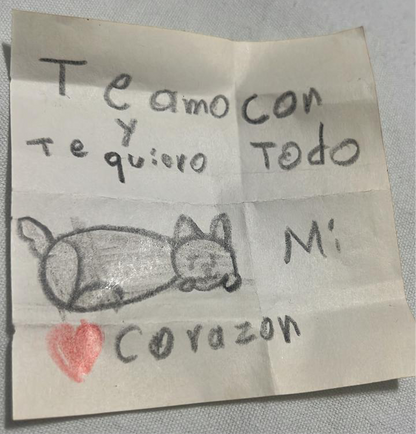 Te amo con
y
Te quiero Todo
Mi
Corazon